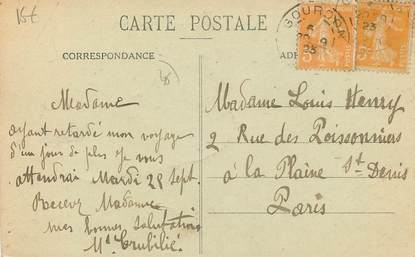 15€
CARTE POSTALE
CORRESPONDANCE
Madame
ayant retardé mon voyage
d'un jour de plus je vous
attendrai Mardi 25 Sept.
Recevez Madame
mes bonnes salutations
GOURDON
23
Madame Louis Henry
2 Rue des Poissonniers
à la Plaine St Denis
Paris